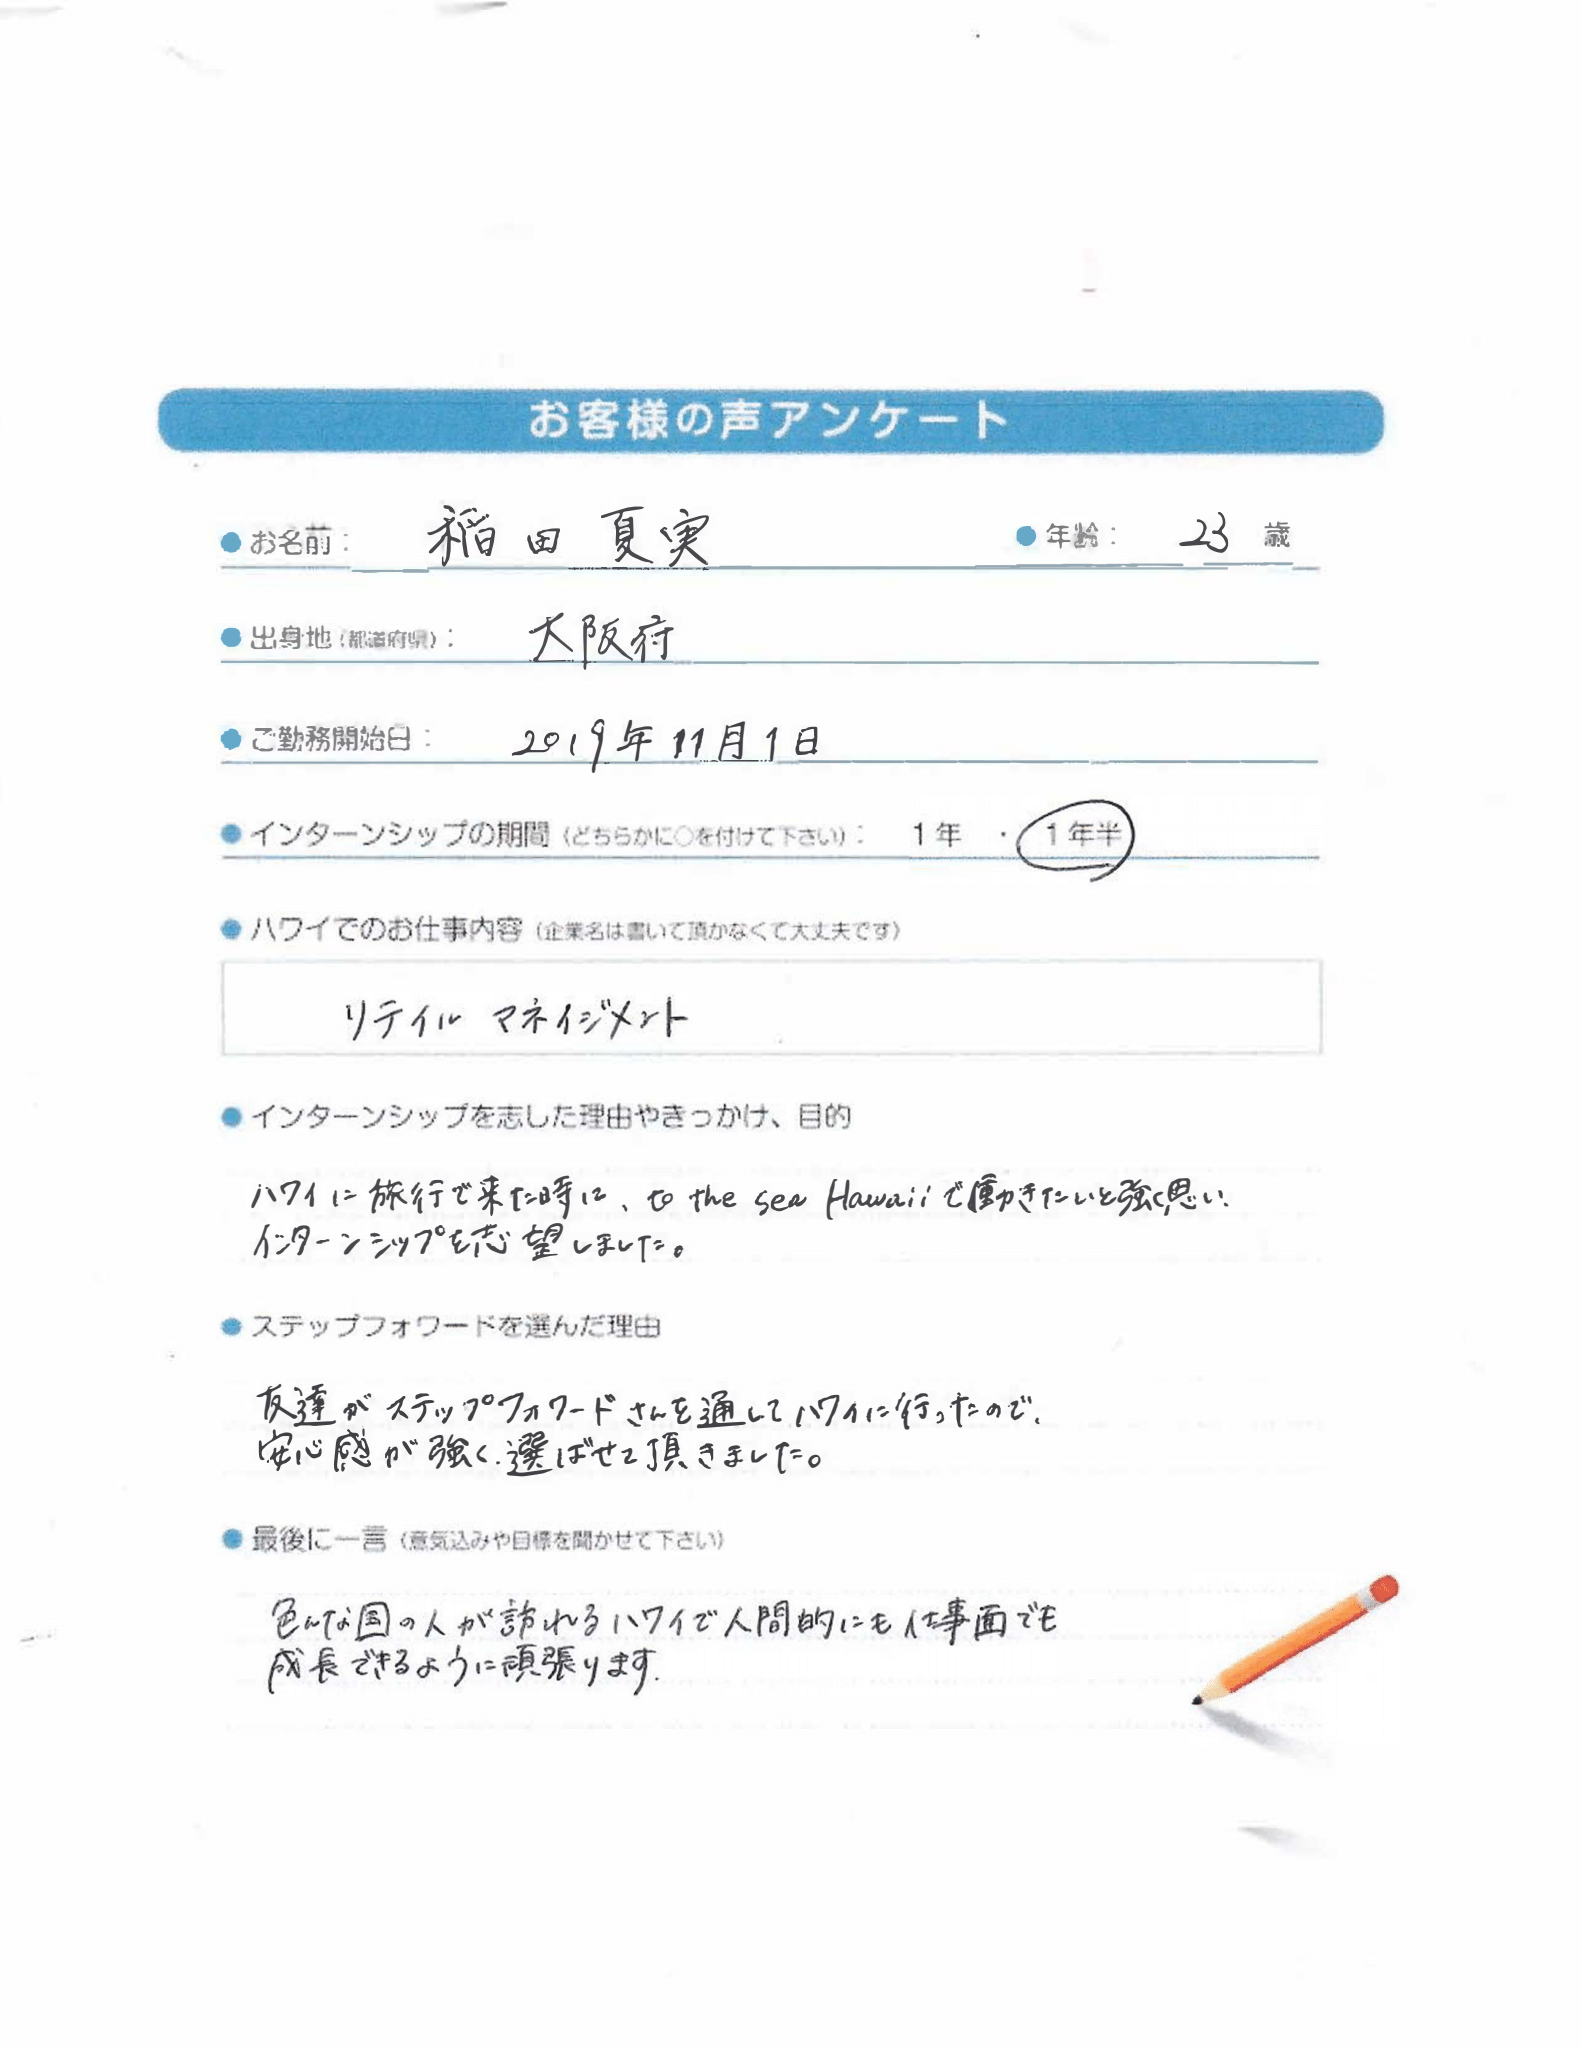 お客様の声アンケート
●お名前： 稲田 夏実 ●年齢： 23 歳
●出身地（都道府県）： 大阪府
●ご勤務開始日： 2019年11月1日
●インターンシップの期間（どちらかに○を付けて下さい）： 1年 ・ 1年半
●ハワイでのお仕事内容（企業名は書いて頂かなくて大丈夫です）
リテイル マネイジメント
●インターンシップを志した理由やきっかけ、目的
ハワイに旅行で来た時に、to the sea Hawaiiで働きたいと強く思い、
インターンシップを志望しました。
●ステップフォワードを選んだ理由
友達がステップフォワードさんを通してハワイに行ったので、
安心感が強く、選ばせて頂きました。
●最後に一言（意気込みや目標を聞かせて下さい）
色んな国の人が訪れるハワイで人間的にも仕事面でも
成長できるように頑張ります.